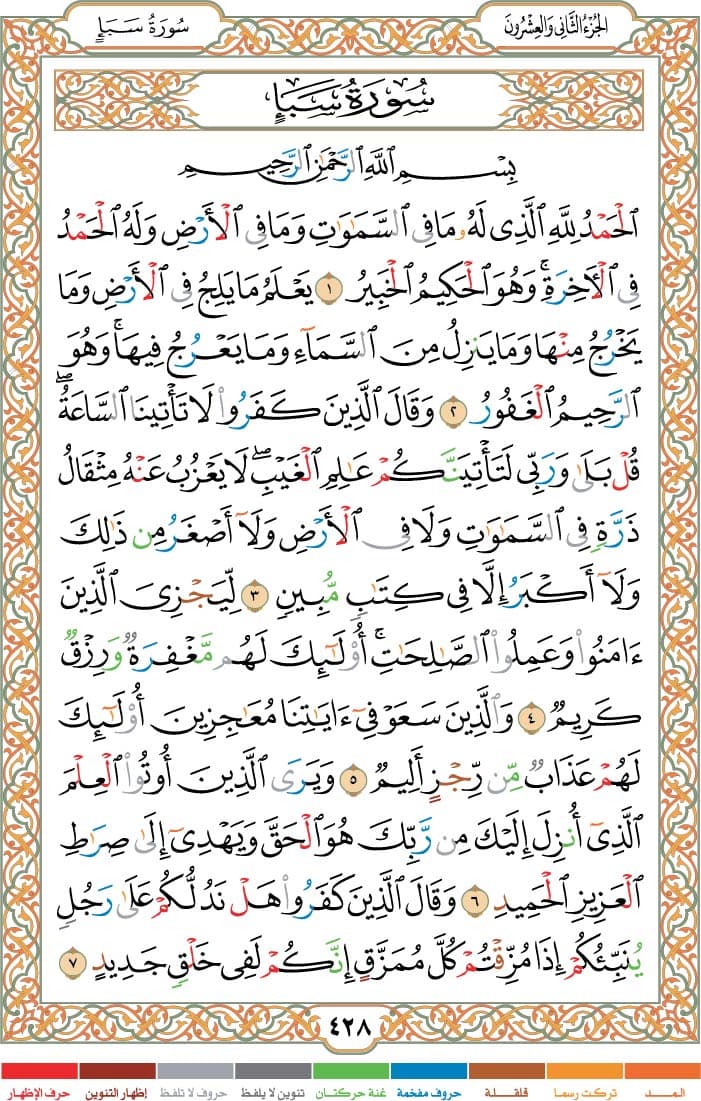 الجُزْءُ الثَّانِي وَالعِشْرُونَ
سُورَةُ سَبَإٍ
سُورَةُ سَبَإٍ
بِسْمِ اللَّهِ الرَّحْمَٰنِ الرَّحِيمِ
الْحَمْدُ لِلَّهِ الَّذِى لَهُۥ مَا فِى السَّمَٰوَٰتِ وَمَا فِى الْأَرْضِ وَلَهُ الْحَمْدُ
فِى الْءَاخِرَةِ ۚ وَهُوَ الْحَكِيمُ الْخَبِيرُ ١ يَعْلَمُ مَا يَلِجُ فِى الْأَرْضِ وَمَا
يَخْرُجُ مِنْهَا وَمَا يَنزِلُ مِنَ السَّمَآءِ وَمَا يَعْرُجُ فِيهَا ۚ وَهُوَ
الرَّحِيمُ الْغَفُورُ ٢ وَقَالَ الَّذِينَ كَفَرُوا۟ لَا تَأْتِينَا السَّاعَةُ ۖ
قُلْ بَلَىٰ وَرَبِّى لَتَأْتِيَنَّكُمْ عَٰلِمِ الْغَيْبِ ۖ لَا يَعْزُبُ عَنْهُ مِثْقَالُ
ذَرَّةٍ فِى السَّمَٰوَٰتِ وَلَا فِى الْأَرْضِ وَلَآ أَصْغَرُ مِن ذَٰلِكَ
وَلَآ أَكْبَرُ إِلَّا فِى كِتَٰبٍ مُّبِينٍ ٣ لِّيَجْزِىَ الَّذِينَ
ءَامَنُوا۟ وَعَمِلُوا۟ الصَّٰلِحَٰتِ ۚ أُو۟لَٰٓئِكَ لَهُم مَّغْفِرَةٌ وَرِزْقٌ
كَرِيمٌ ٤ وَالَّذِينَ سَعَوْ فِىٓ ءَايَٰتِنَا مُعَٰجِزِينَ أُو۟لَٰٓئِكَ
لَهُمْ عَذَابٌ مِّن رِّجْزٍ أَلِيمٌ ٥ وَيَرَى الَّذِينَ أُوتُوا۟ الْعِلْمَ
الَّذِىٓ أُنزِلَ إِلَيْكَ مِن رَّبِّكَ هُوَ الْحَقَّ وَيَهْدِىٓ إِلَىٰ صِرَٰطِ
الْعَزِيزِ الْحَمِيدِ ٦ وَقَالَ الَّذِينَ كَفَرُوا۟ هَلْ نَدُلُّكُمْ عَلَىٰ رَجُلٍ
يُنَبِّئُكُمْ إِذَا مُزِّقْتُمْ كُلَّ مُمَزَّقٍ إِنَّكُمْ لَفِى خَلْقٍ جَدِيدٍ ٧
٤٢٨
المـــد تركت رسما قلقـــلة حروف مفخمة غنة حركتان تنوين لا يلفظ حروف لا تلفظ إظهار التنوين حرف الإظهار